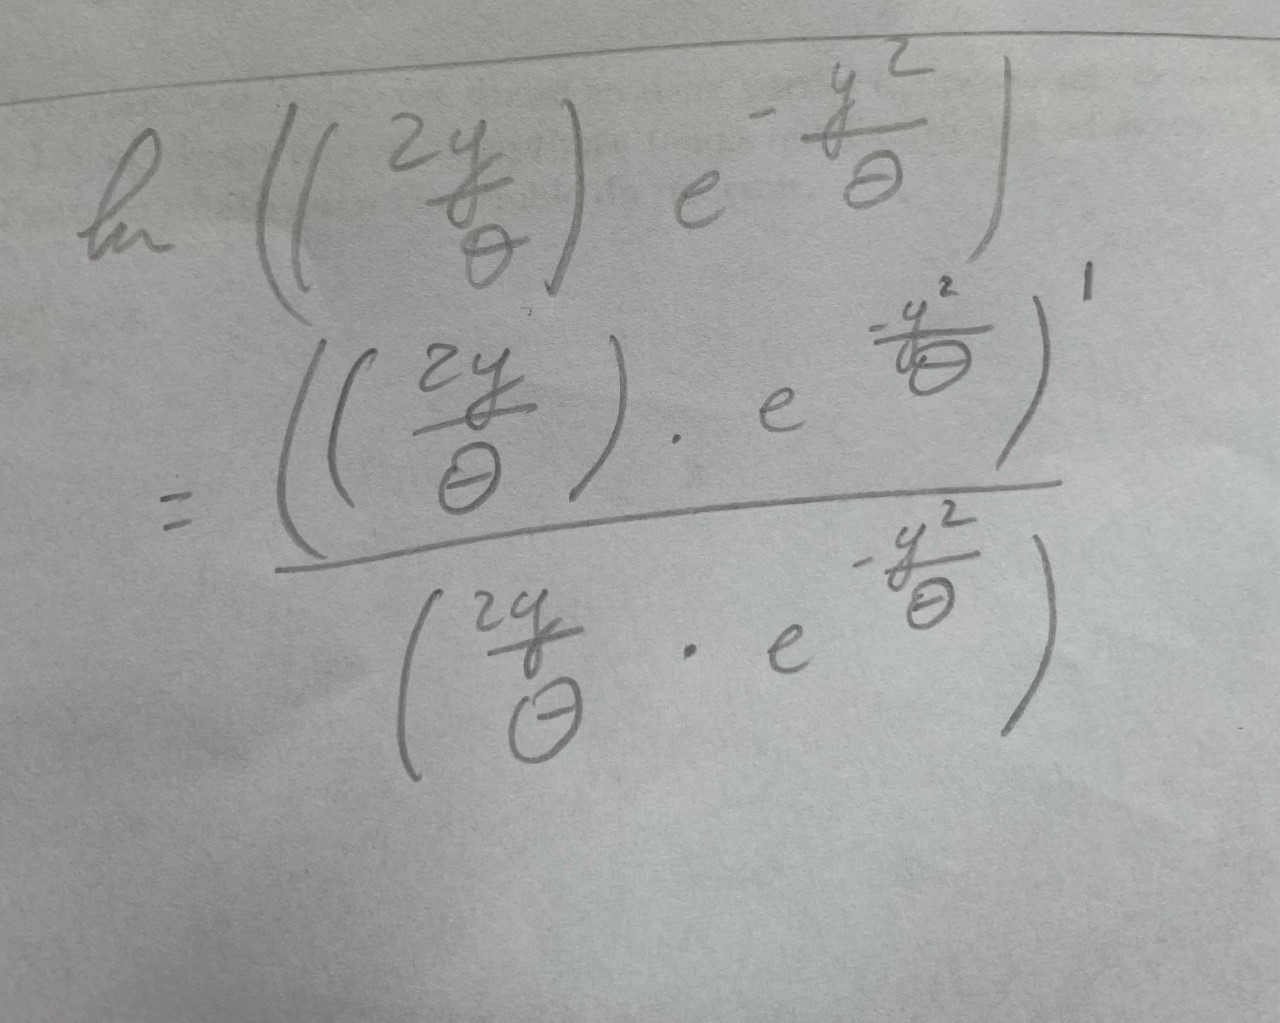 ln ((2y/θ) e^(-y²/θ))
= ((2y/θ) · e^(-y²/θ))' / (2y/θ · e^(-y²/θ))